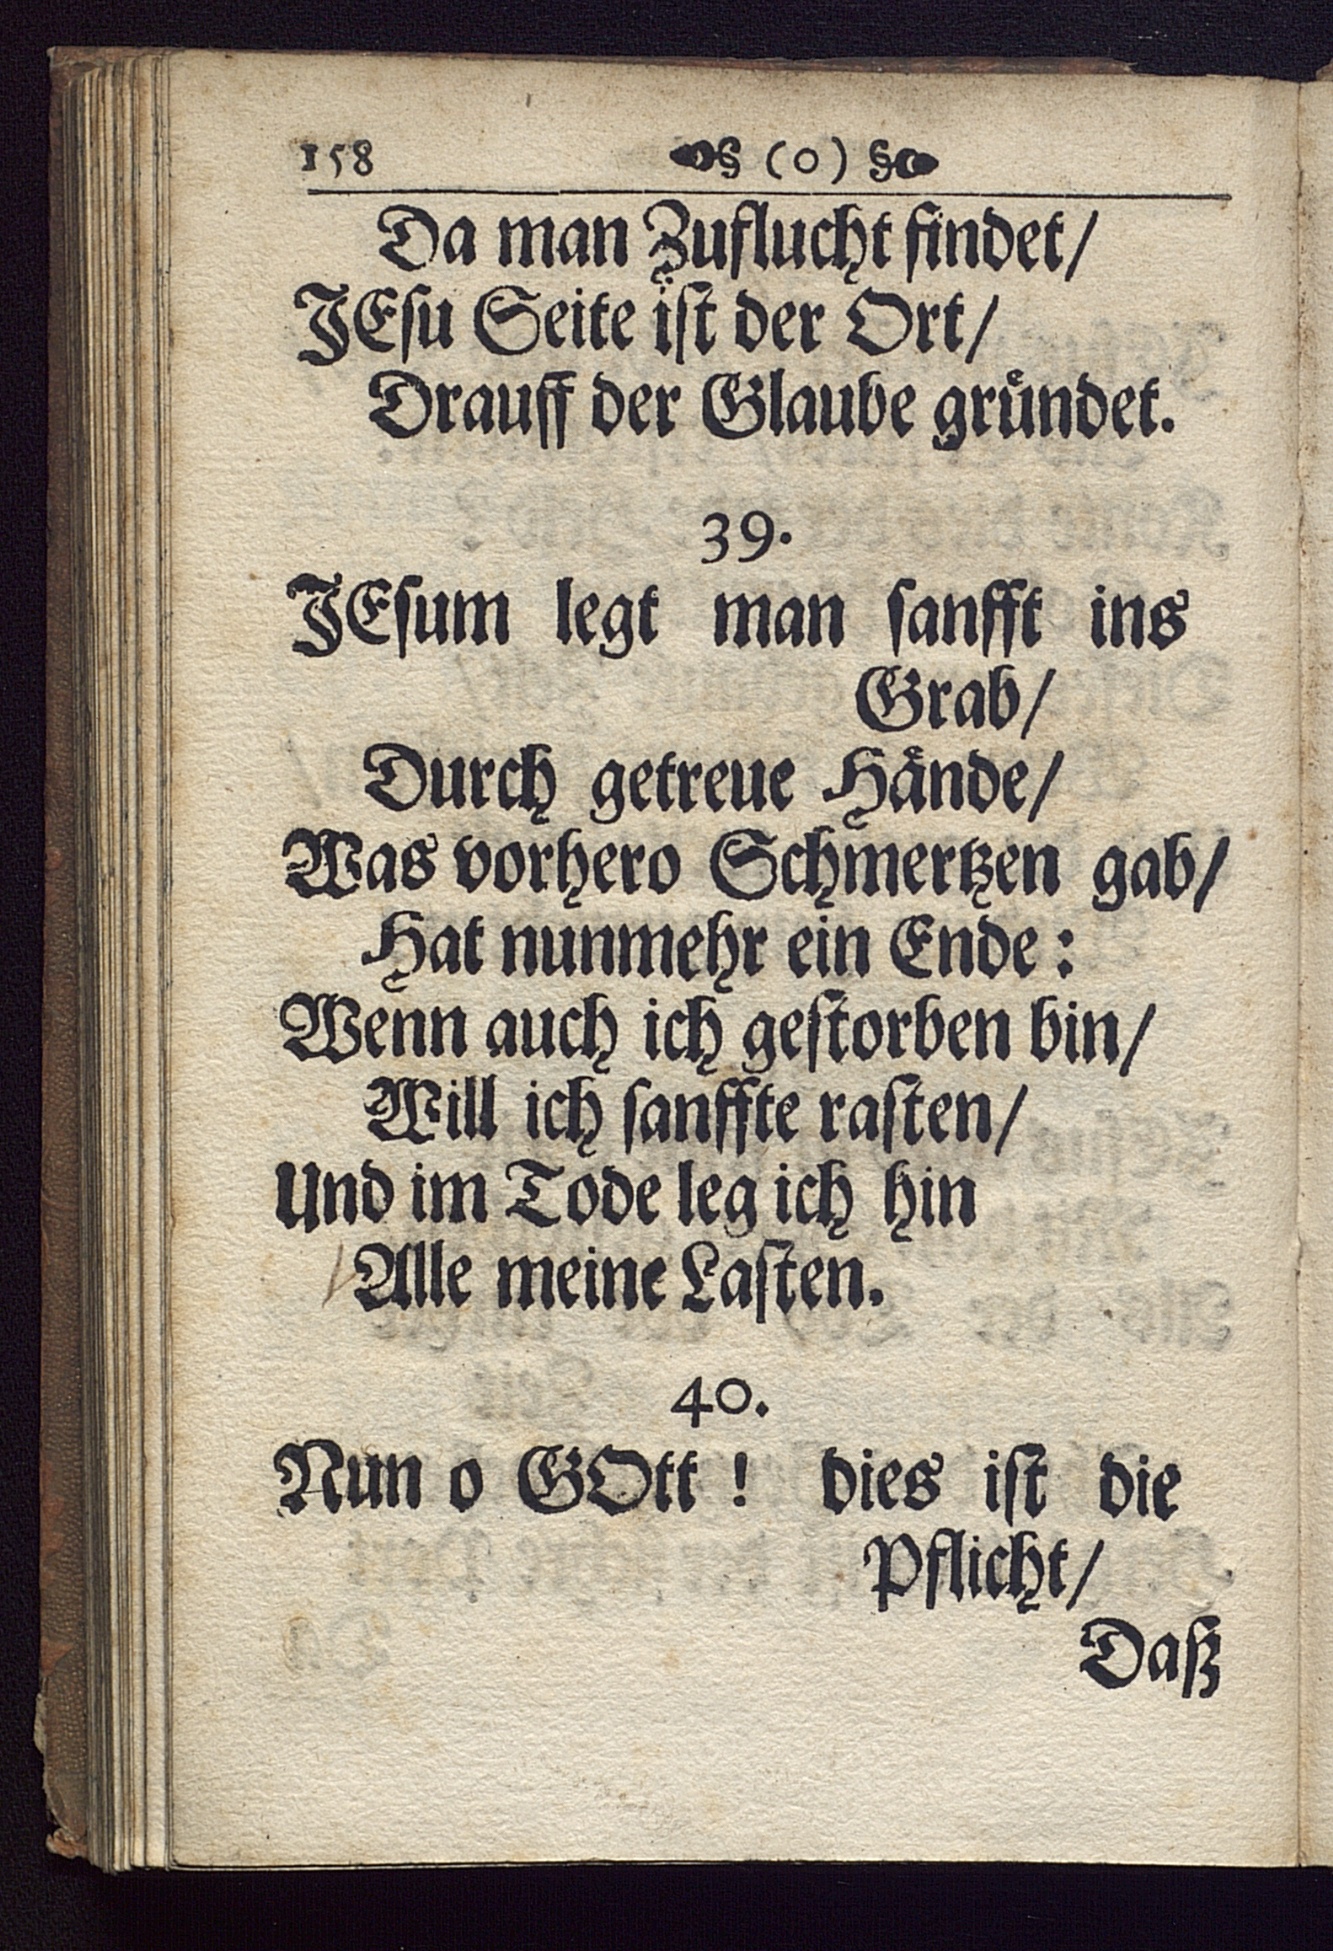 158 §(0)§
Da man Zuflucht findet/
JEsu Seite ist der Ort/
Drauff der Glaube gründet.
39.
JEsum legt man sanfft ins
Grab/
Durch getreue Hände/
Was vorhero Schmertzen gab/
Hat nunmehr ein Ende:
Wenn auch ich gestorben bin/
Will ich sanffte rasten/
Und im Tode leg ich hin
Alle meine Lasten.
40.
Nun o GOtt! dies ist die
Pflicht/
Daß